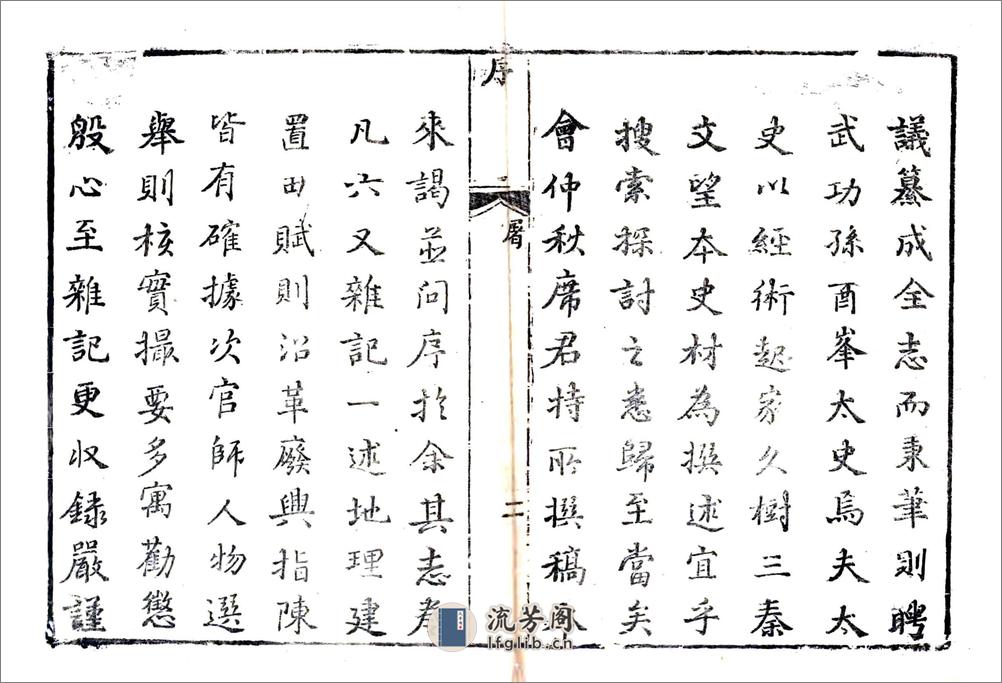 議纂成全志而秉筆則聘
武功孫酉峯太史焉夫太
史以經術起家久樹三秦
文望本史材為撰述宜乎
搜索探討之悉歸至當矣
會仲秋席君持所撰稿
序
二
來謁並問序於余其志者
凡六又雜記一述地理建
置田賦則沿革廢興指陳
皆有確據次官師人物選
舉則核實撮要多寓勸懲
殷心至雜記更収録嚴謹
流芳阁
lfglib.ch